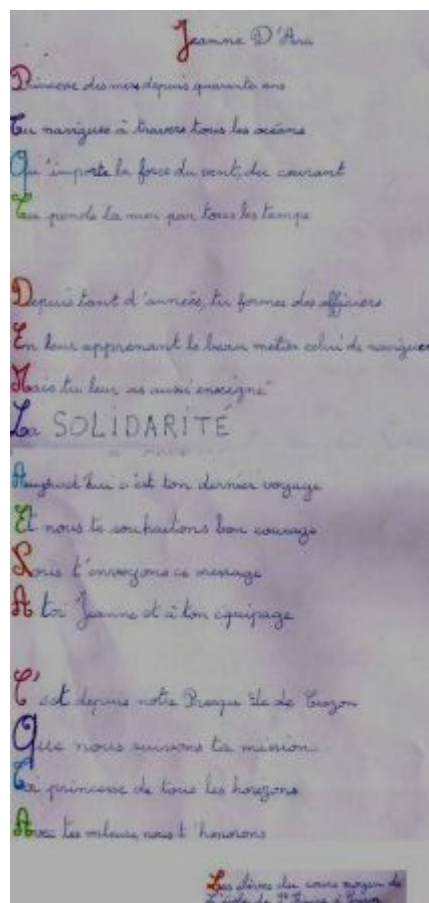 Jeanne D'Arc
Princesse des mers depuis quarante ans
Tu navigues à travers tous les océans
Qu'importe la force du vent, du courant
Tu fends la mer par tous les temps
Depuis tant d'années, tu formes des officiers
En leur apprenant le beau métier celui de naviguer
Mais tu leur as aussi enseigné
La SOLIDARITÉ
Aujourd'hui c'est ton dernier voyage
Et nous te souhaitons bon courage
Nous t'envoyons ce message
A toi Jeanne et à ton équipage
C'est depuis notre Presqu'île de Crozon
Que nous suivons ta mission
Toi princesse de tous les horizons
Avec tes nous t'honorons
Les élèves du cours moyen de
L'école de à Crozon